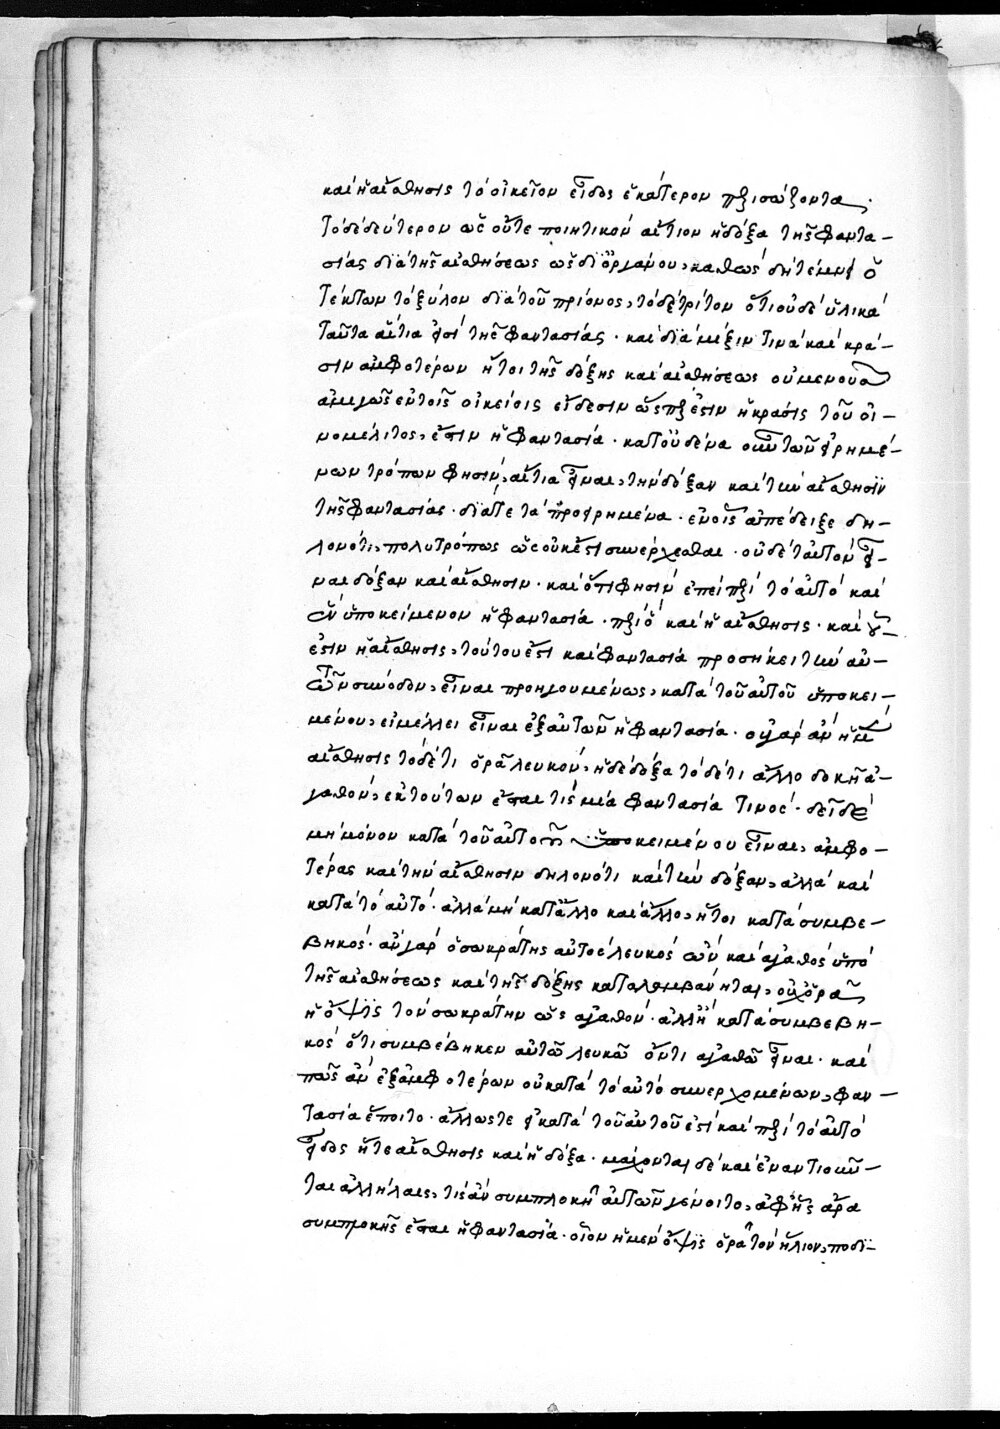 καὶ ἡ αἴσθησις τὸ οἰκεῖον εἶδος ἑκάτερον περισώζοντα.
τὸ δὲ δεύτερον ὡς οὔτε ποιητικὸν αἴτιον ἡ δόξα τῆς φαντα-
σίας διὰ τῆς αἰσθήσεως ὡς δι' ὀργάνου, καθὼς δὴ τέμνει ὁ
τέκτων τὸ ξύλον διὰ τοῦ πρίονος, τὸ δὲ τρίτον ὅτι οὐδὲ ὑλικὰ
ταῦτα αἴτια εἰσὶ τῆς φαντασίας. καὶ διὰ μίξιν τινὰ καὶ κρά-
σιν ἀμφοτέρων ἤτοι τῆς δόξης καὶ αἰσθήσεως οὐ μενουσῶν
ἀμιγῶς ἐν τοῖς οἰκείοις εἴδεσιν ὥσπερ ἐστὶν ἡ κρᾶσις τοῦ οἰ-
νομέλιτος, ἔστιν ἡ φαντασία. κατ' οὐδένα οὖν τῶν εἰρημέ-
νων τρόπων φησὶν, αἴτια εἶναι, τὴν δόξαν καὶ τὴν αἴσθησιν
τῆς φαντασίας. διά τε τὰ προειρημένα. ἐν οἷς ἀπέδειξε δη-
λονότι, πολυτρόπως ὡς οὐκ ἔστι συνέρχεσθαι. οὐδὲ ταυτὸν εἶ-
ναι δόξαν καὶ αἴσθησιν. καὶ ὅτι φησὶν ἐπεὶ περὶ τὸ αὐτὸ καὶ
ἓν ὑποκείμενον ἡ φαντασία. περὶ ὃ καὶ ἡ αἴσθησις. καὶ οὗ
ἐστιν ἡ αἴσθησις, τούτου ἐστὶ καὶ φαντασία προσήκει τὴν αὐ-
τῶν σύνοδον, εἶναι προηγουμένως, κατὰ τοῦ αὐτοῦ ὑποκει-
μένου, εἰ μέλλει εἶναι ἐξ αὐτῶν ἡ φαντασία. οὐ γὰρ ἂν ἡ μὲν
αἴσθησις τοδέτι ὁρᾷ λευκὸν, ἡ δὲ δόξα τοδέτι ἄλλο δοκῇ ἀ-
γαθὸν, ἐκ τούτων ἔσται τις μία φαντασία τινός. δεῖ δὲ
μὴ μόνον κατὰ τοῦ αὐτοῦ ὑποκειμένου εἶναι, ἀμφο-
τέρας καὶ τὴν αἴσθησιν δηλονότι καὶ τὴν δόξαν, ἀλλὰ καὶ
κατὰ τὸ αὐτό. ἀλλὰ μὴ κατ' ἄλλο καὶ ἄλλο, ἤτοι κατὰ συμβε-
βηκός. ἂν γὰρ ὁ σωκράτης αὐτὸς λευκὸς ὢν καὶ ἀγαθὸς ὑπὸ
τῆς αἰσθήσεως καὶ τῆς δόξης καταλαμβάνηται, οὐχ ὁρᾷ
ἡ ὄψις τὸν σωκράτην ὡς ἀγαθόν. ἀλλ' ἢ κατὰ συμβεβη-
κὸς ὅτι συμβέβηκεν αὐτῷ λευκῷ ὄντι ἀγαθῷ εἶναι. καὶ
πῶς ἂν ἐξ ἀμφοτέρων οὐ κατὰ τὸ αὐτὸ συνερχομένων, φαν-
τασία ἕποιτο. ἄλλως τε εἰ κατὰ τοῦ αὐτοῦ ἐστὶ καὶ περὶ τὸ αὐτὸ
εἶδος ἥτε αἴσθησις καὶ ἡ δόξα. μάχονται δὲ καὶ ἐναντιοῦν-
ται ἀλλήλαις, τίς ἂν συμπλοκὴ αὐτῶν γένοιτο, ἀφ' ἧς ἄρα
συμπλοκῆς ἔσται ἡ φαντασία. οἷον ἡ μὲν ὄψις ὁρᾷ τὸν ἥλιον, ποδι-